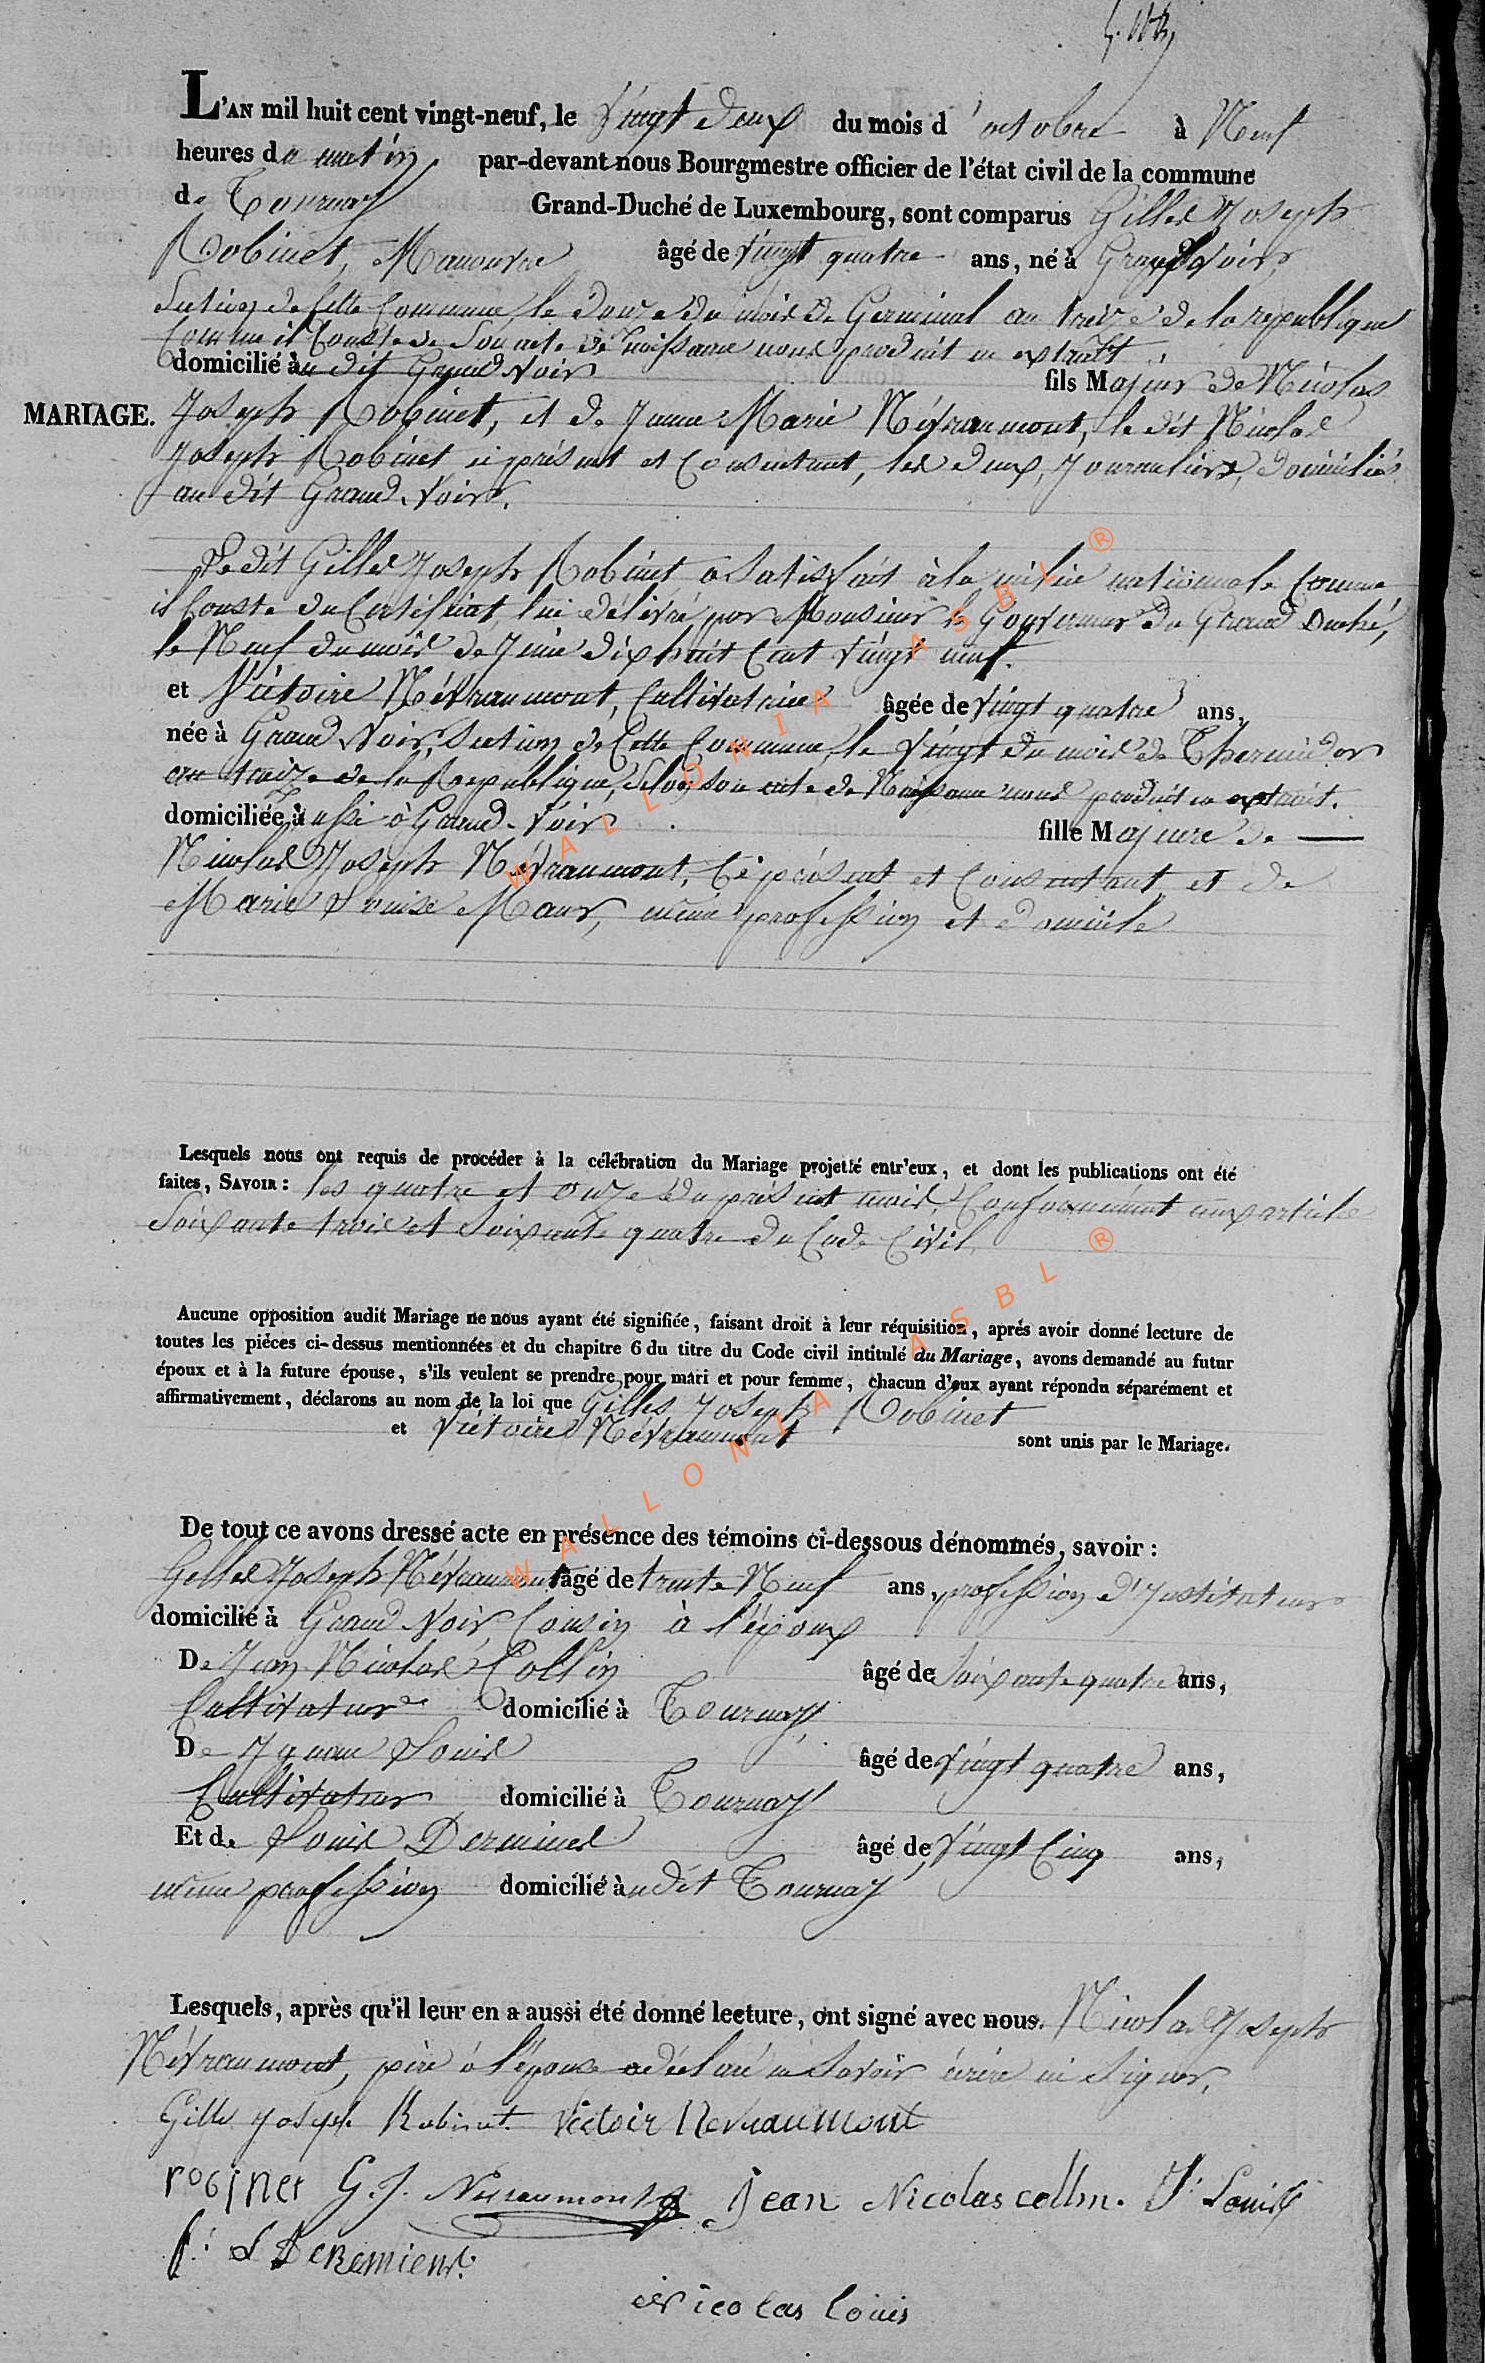 L'AN mil huit cent vingt-neuf, le vingt deux du mois d'octobre à Neuf
heures du matin, par-devant nous Bourgmestre officier de l'état civil de la commune
de Tournay Grand-Duché de Luxembourg, sont comparus Gilles Joseph
Robinet, Manouvre âgé de vingt quatre ans, né à Grand Voir,
Section de Cette Commune, le douze du mois de Germinal an treize de la republique
Comme il Conste de Son acte de Naissance nous produit en extrait,
domicilié au dit Grand Voir fils Majeur de Nicolas
MARIAGE. Joseph Robinet, et de Jeanne Marie Névraumont, le dit Nicolas
Joseph Robinet ci présent et Consentant, les deux, Journaliers, domiciliés
au dit Grand-Voir.
Ledit Gilles Joseph Robinet a Satisfait à la milice nationale Comme
il Conste du Certificat, lui délivré par Monsieur le Gouverneur du Grand Duché,
le Neuf du mois de Juin dix huit Cent vingt neuf.
et Victoire Névraumont, Cultivatrice âgée de vingt quatre ans,
née à Grand Voir, Section de Cette Commune, le vingt du mois de Thermidor
an treize de la Republique, Selon son acte de Naissance nous produit en extrait.
domiciliée aussi à Grand-Voir fille Majeure de
Nicolas Joseph Névraumont, Ci présent et Consentant, et de
Marie Louise Maur, même profession et domicile
Lesquels nous ont requis de procéder à la célébration du Mariage projetté entr'eux, et dont les publications ont été
faites, SAVOIR : les quatre et onze du présent mois, Conformément aux articles
Soixante trois et Soixante quatre du Code Civil,
Aucune opposition audit Mariage ne nous ayant été signifiée, faisant droit à leur réquisition, après avoir donné lecture de
toutes les pièces ci-dessus mentionnées et du chapitre 6 du titre du Code civil intitulé du Mariage, avons demandé au futur
époux et à la future épouse, s'ils veulent se prendre pour mari et pour femme, chacun d'eux ayant répondu séparément et
affirmativement, déclarons au nom de la loi que Gilles Joseph Robinet
et Victoire Névraumont sont unis par le Mariage.
De tout ce avons dressé acte en présence des témoins ci-dessous dénommés, savoir :
Gilles Joseph Névraumont âgé de trente Neuf ans, profession d'Instituteur
domicilié à Grand Voir Cousin à l'époux
De Jean Nicolas Collin âgé de Soixante quatre ans,
Cultivateur domicilié à Tournay,
De Ignace Louis âgé de vingt quatre ans,
Cultivateur domicilié à Tournay
Et de Louis Derminel âgé de vingt Cinq ans,
même profession domicilié audit Tournay
Lesquels, après qu'il leur en a aussi été donné lecture, ont signé avec nous. Nicolas Joseph
Névraumont, père à l'épouse a déclaré ne Savoir écrire ni Signer,
Gilles Joseph Robinet Victoir Nevraumont
robinet G. J. Nevraumont Jean Nicolas collin. J. Louis
Nicolas louis
WALLONIA ASBL ®
WALLONIA ASBL ®